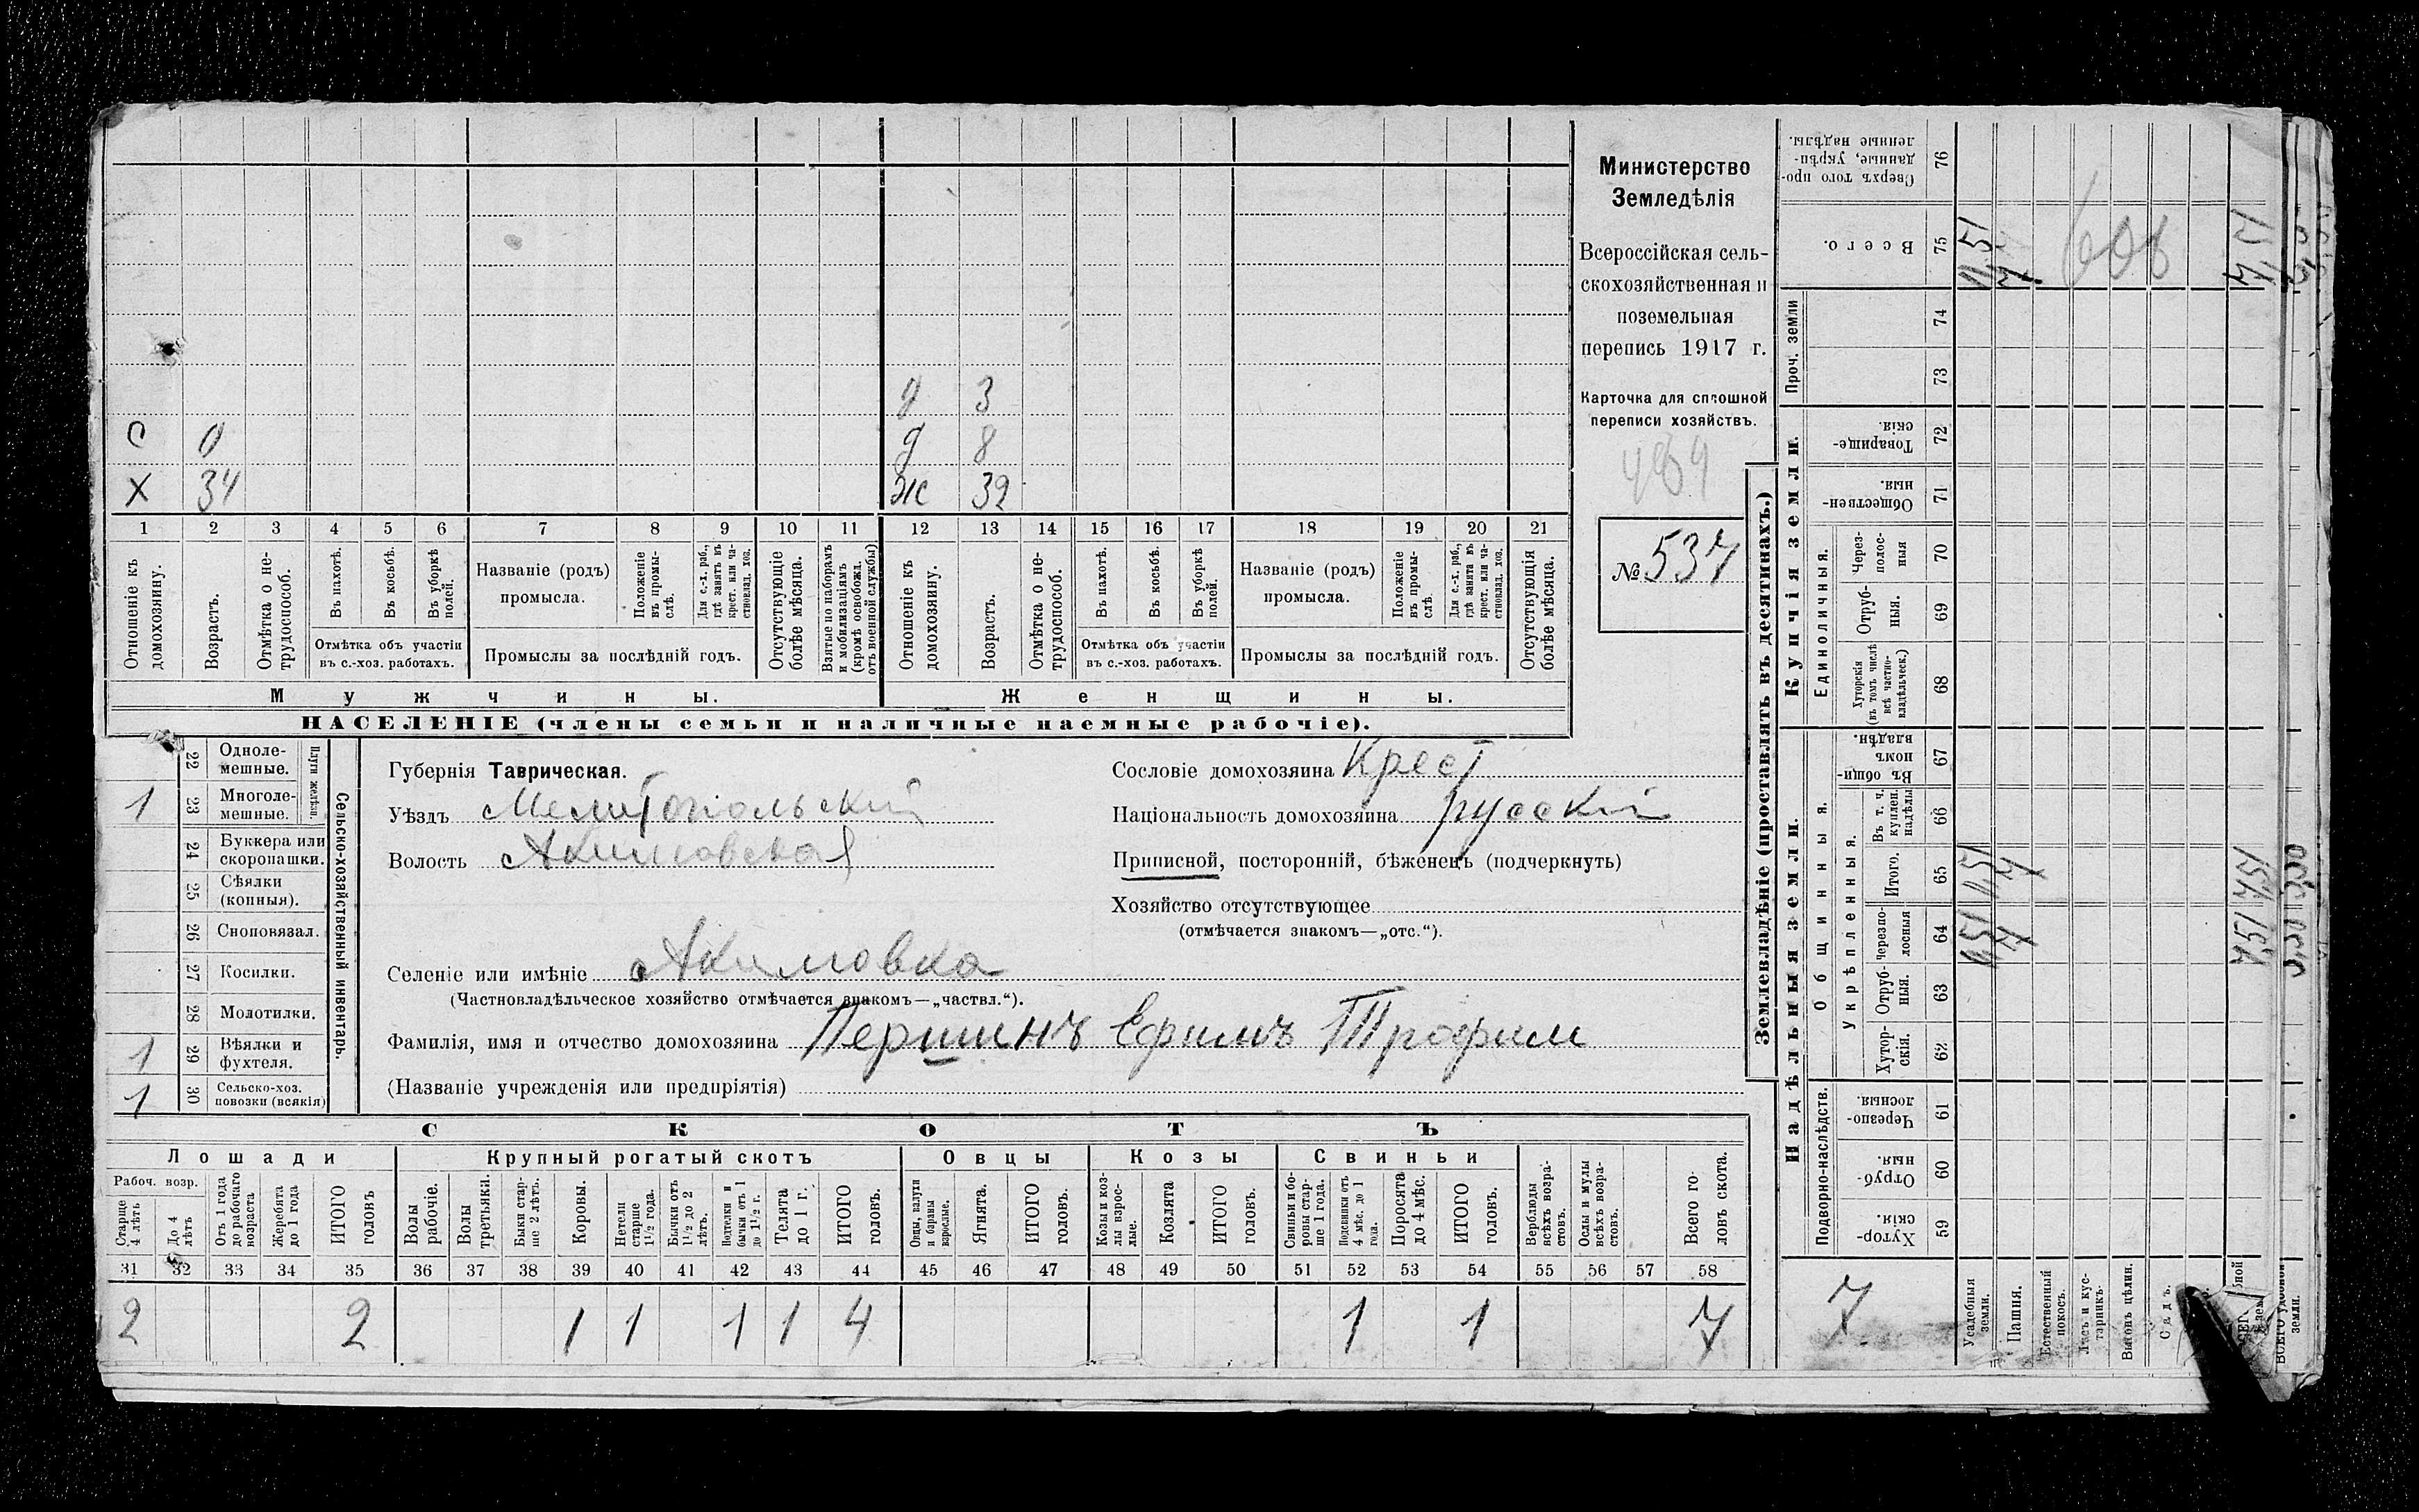 Министерство
Земледѣлія
Всероссійская сель-
скохозяйственная и
поземельная
перепись 1917 г.
Карточка для сплошной
переписи хозяйствъ.
№ 537
д 3
С 0 д 8
Х 34 Ж 32
1 2 3 4 5 6 7 8 9 10 11 12 13 14 15 16 17 18 19 20 21
Отношеніе къ домохозяину.
Возрастъ.
Отмѣтка о не-трудоспособ.
Въ пахотѣ.
Въ косьбѣ.
Въ уборкѣ полей.
Отмѣтка объ участіи
въ с.-хоз. работахъ.
Названіе (родъ)
промысла.
Положеніе въ промы-слѣ.
Для с.-х. раб., гдѣ занятъ въ крест. или ча-стновлад. хоз.
Промыслы за послѣдній годъ.
Отсутствующіе болѣе мѣсяца.
Взятые по наборамъ и мобилизаціямъ (кромѣ освобожд. отъ военной службы)
Отношеніе къ домохозяину.
Возрастъ.
Отмѣтка о не-трудоспособ.
Въ пахотѣ.
Въ косьбѣ.
Въ уборкѣ полей.
Отмѣтка объ участіи
въ с.-хоз. работахъ.
Названіе (родъ)
промысла.
Положеніе въ промы-слѣ.
Для с.-х. раб., гдѣ занята въ крест. или ча-стновлад. хоз.
Промыслы за послѣдній годъ.
Отсутствующія болѣе мѣсяца.
Мужчины. Женщины.
НАСЕЛЕНІЕ (члены семьи и наличные наемные рабочіе).
Сельско-хозяйственный инвентарь.
Плуги желѣзн.
22 Одноле-мешные.
1 23 Многоле-мешные.
24 Буккера или скоропашки.
25 Сѣялки (конныя).
26 Сноповязал.
27 Косилки.
28 Молотилки.
1 29 Вѣялки и фухтеля.
1 30 Сельско-хоз. повозки (всякія)
Губернія Таврическая.
Уѣздъ Мелитопольский
Волость Акимовская
Селеніе или имѣніе Акимовка
(Частновладѣльческое хозяйство отмѣчается знакомъ—„частвл.“).
Фамилія, имя и отчество домохозяина Першинъ Ефимъ Трофим
(Названіе учрежденія или предпріятія)
Сословіе домохозяина Крест
Національность домохозяина русский
Приписной, посторонній, бѣженецъ (подчеркнуть)
Хозяйство отсутствующее
(отмѣчается знакомъ—„отс.“).
СКОТЪ
Лошади Крупный рогатый скотъ Овцы Козы Свиньи
Рабоч. возр.
Старше 4 лѣтъ
До 4 лѣтъ
Отъ 1 года до рабочаго возраста
Жеребята до 1 года
ИТОГО головъ
Волы рабочіе.
Волы третьяки.
Быки стар-ше 2 лѣтъ.
Коровы.
Нетели старше 1½ года.
Бычки отъ 1½ до 2 лѣтъ.
Подтелки и бычки отъ 1 до 1½ г.
Телята до 1 г.
ИТОГО головъ.
Овцы, валухи и бараны взрослые.
Ягнята.
ИТОГО головъ.
Козы и коз-лы взрос-лые.
Козлята
ИТОГО головъ.
Свиньи и бо-ровы стар-ше 1 года.
Подсвинки отъ 4 мѣс. до 1 года.
Поросята до 4 мѣс.
ИТОГО головъ.
Верблюды всѣхъ возра-стовъ.
Ослы и мулы всѣхъ возра-стовъ.
Всего го-ловъ скота.
31 32 33 34 35 36 37 38 39 40 41 42 43 44 45 46 47 48 49 50 51 52 53 54 55 56 57 58
2 2 1 1 1 1 4 1 1 7
Землевладѣніе (проставлять въ десятинахъ.)
Сверхъ того про-данные, укрѣп-ленные надѣлы. 76
Всего. 75
Проч. земли 74 73
Купчія земли.
Товарище-скія. 72
Обществен-ныя. 71
Единоличныя.
Через-полос-ныя 70
Отруб-ныя. 69
Хуторскія (въ томъ числѣ всѣ частно-владѣльческ.) 68
Надѣльныя земли.
Общинныя.
Въ общи-номъ владѣн. 67
Укрѣпленныя.
Въ т. ч. куплен. надѣлы 66
Итого. 65
Черезпо-лосныя 64
Отруб-ныя. 63
Хутор-скія. 62
Подворно-наслѣдств.
Черезпо-лосныя. 61
Отруб-ныя. 60
Хутор-скія. 59
7
Усадебныя земли.
Пашня.
Естественный покосъ.
Лѣсъ и кус-тарникъ.
Выгонъ цѣлин.
Садъ.